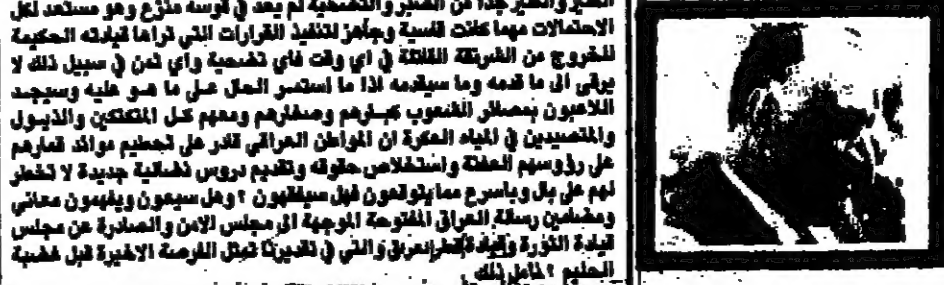 الصبر والصبر جدا من الصبر والتضحية لم يعد في قوسه منزع وهو مستعد لكل
الاحتمالات مهما كانت قاسية وجاهز لتنفيذ القرارات التي تراها قيادته الحكيمة
للخروج من الشرنقة القاتلة في اي وقت فأي تضحية وأي ثمن في سبيل ذلك لا
يرقى الى ما قدمه وما سيقدمه اذا ما استمر الحال على ما هو عليه وسيجد
اللاعبون بمصائر الشعوب كبارهم وصغارهم ومعهم كل المتكتكين والذيول
والمتصيدين في المياه العكرة ان المواطن العراقي قادر على تحطيم موائد قمارهم
على رؤوسهم العفنة واستخلاص حقوقه وتقديم دروس نضالية جديدة لا تخطر
لهم على بال وباسرع مما يتوقعون فهل سيفقهون ؟ وهل سيعون ويفهمون معاني
ومضامين رسالة العراق المفتوحة الموجهة الى مجلس الامن والصادرة عن مجلس
قيادة الثورة وقيادة قطر العراق والتي في تقديرنا تمثل الفرصة الاخيرة قبل غضبة
الحليم ؟ نامل ذلك .